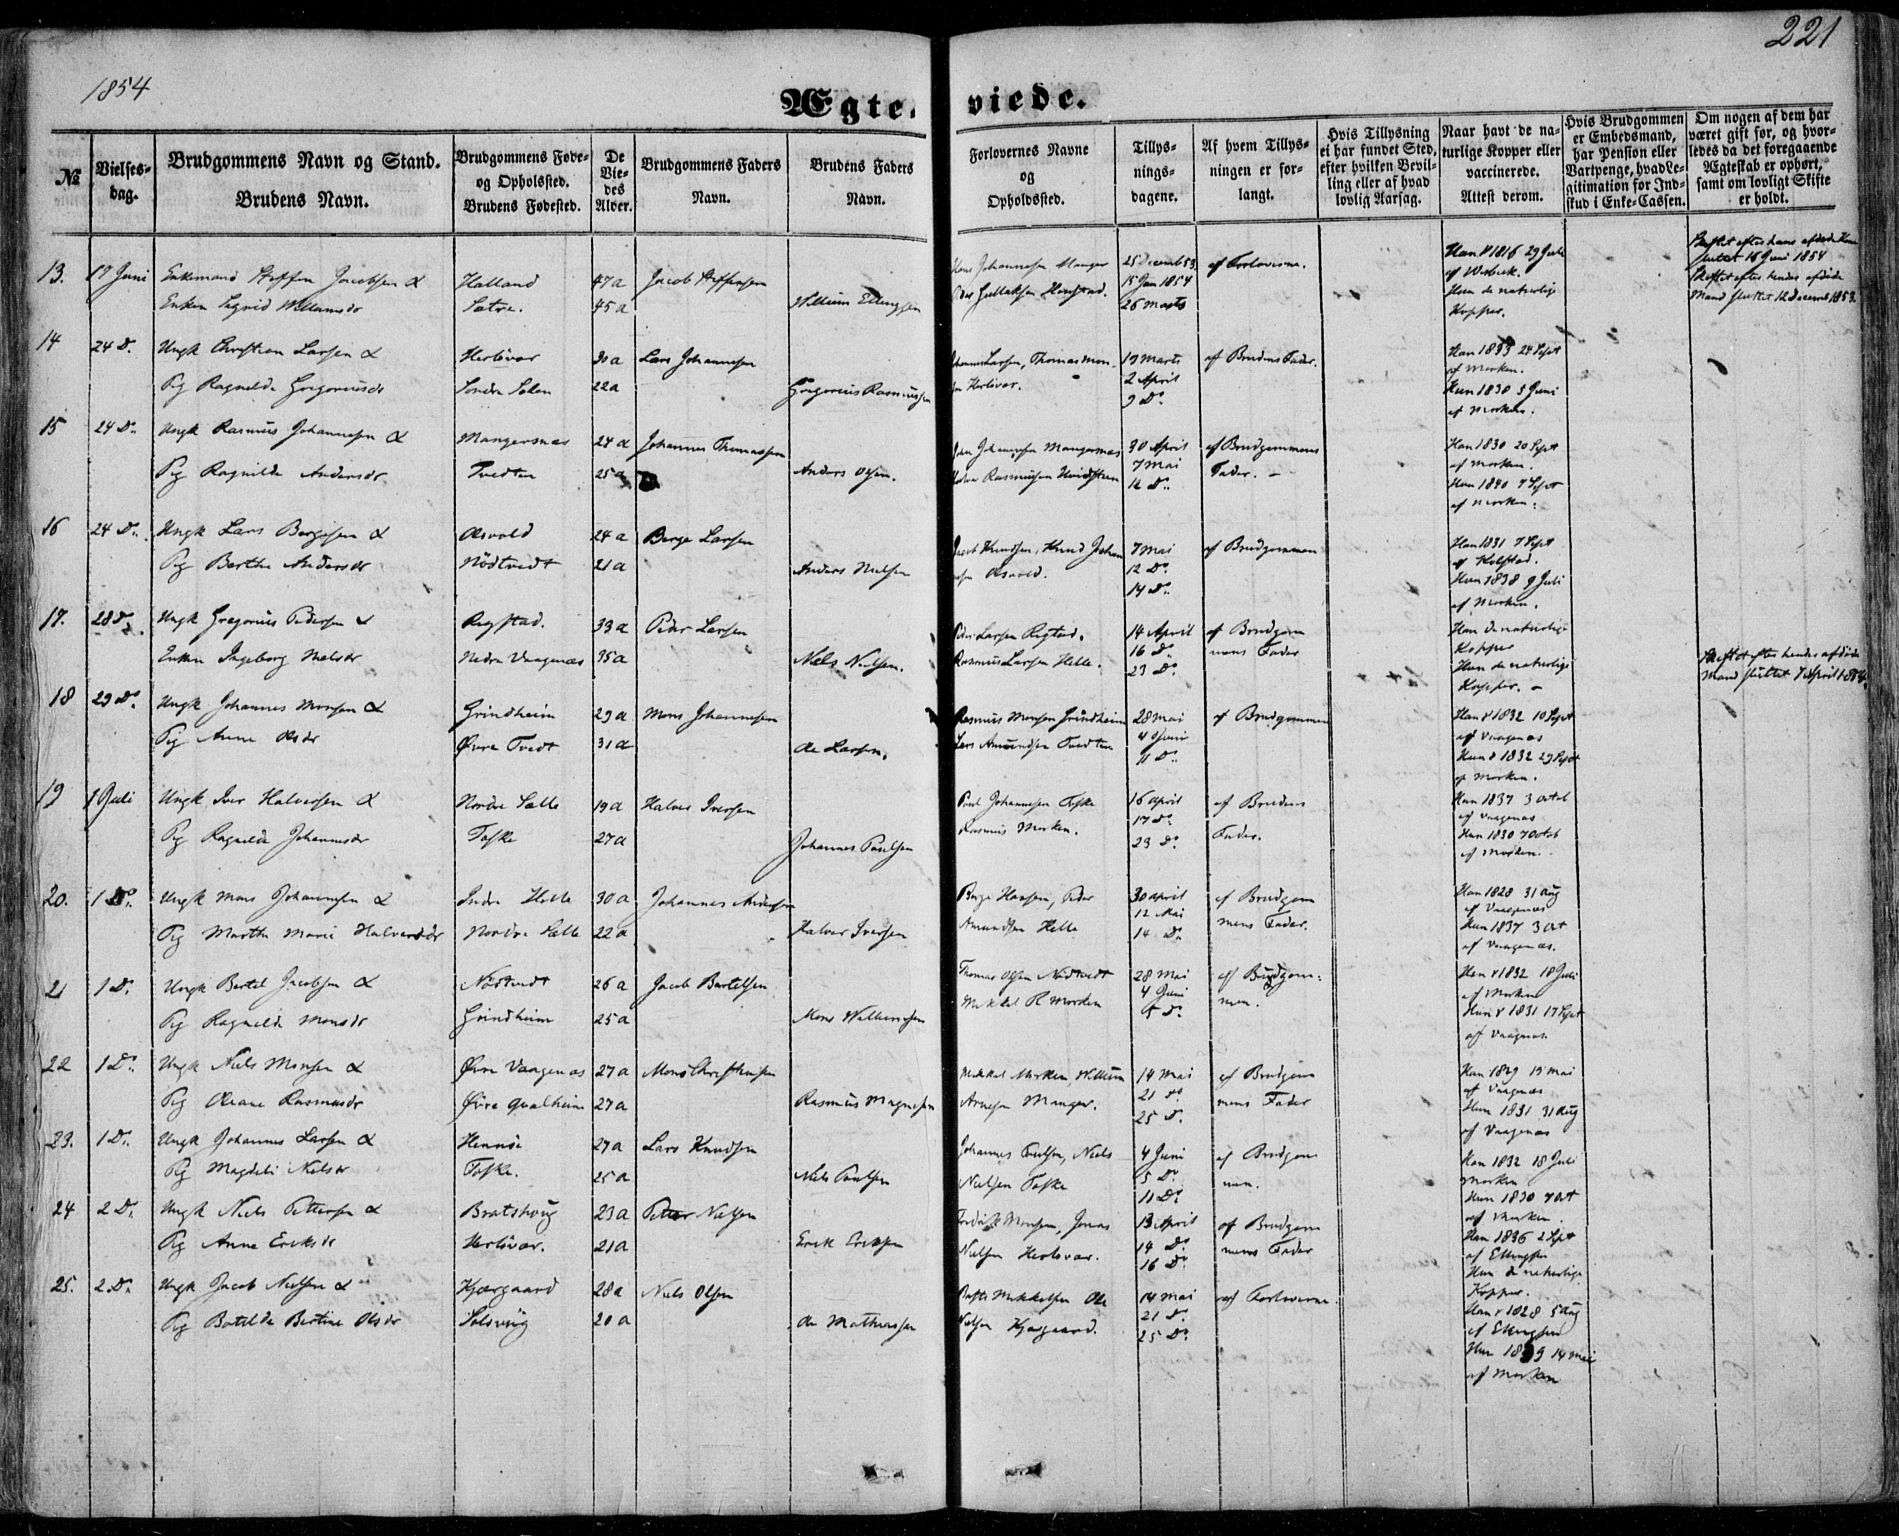 1854
221
Ægteviede.
№
Vielsesdag.
Brudgommens Navn og Stand.
Brudens Navn.
Brudgommens Føde- og Opholdssted.
Brudens Fødested.
De Viedes Alder.
Brudgommens Faders Navn.
Brudens Faders Navn.
Forlovernes Navne og Opholdssted.
Tillysningsdagene.
Af hvem Tillysningen er forlangt.
Hvis Tillysning ei har fundet Sted, efter hvilken Bevilling eller af hvad lovlig Aarsag.
Naar havt de naturlige Kopper eller vaccinerede.
Attest derom.
Hvis Brudgommen er Embedsmand, har Pension eller Vartpenge, hvad Legitimation for Indskud i Enke-Cassen.
Om nogen af dem har været gift før, og hvorledes da det foregaaende Ægteskab er ophørt, samt om lovligt Skifte er holdt.
13. 17 Juni Enkemand Steffen Jacobsen & Halland 47 a Jacob Steffensen
Enken Sigrid Willumsdr Sætre. 45 a Willum Ellingsen
Hans Johannesen Manger 25 Decemb 53 af Forloverne.
15 Jan 1854
26 Marts
Hun de naturlige
Kopper.
Skiftet efter hans afdøde Kone
sluttet 16 Juni 1854
Skiftet efter hendes afdøde
Mand sluttet 12 Decemb 1853.
14 24 D. Ungk Christian Larsen & Herløvær 30 a Lars Johannesen
Pig Ragnilde Gregoriusdr Søndre Solen 22 a Gregorius Rasmussen
Johannes Larsen, Thomas Mon-
sen Herløver.
19 Marts
2 April
9 D.
af Brudens Fader.
Han 1833 24 Sept
af Morken.
Hun 1830 5 Juni
af Morken.
15 24 D. Ungk Rasmus Johannesen & Mangersnæs 24 a Johannes Thomassen
Pig Ragnilde Andersdr Tvedten 25 a Anders Olsen.
30 April
7 Mai
12 D.
af Brudgommens
Fader. -
Han 1830 20 Sept
af Morken.
Hun 1840 7 Sept
af Morken.
16 24 D. Ungk Lars Børgesen & Asvold 24 a Børge Larsen
Pig Berthe Andersdr Nødtvedt 21 a Anders Nielsen
Jacob Knudsen, Knud Johan-
sen Asvold.
7 Mai
12 D.
14 D.
af Brudgommen
Han 1831 7 Sept
af Kolstad.
Hun 1838 9 Juli
af Morken.
17. 28 D. Ungk Gregorius Pedersen & Rigstad. 33 a Peder Larsen
Enken Ingeborg Nielsdr Nedre Vaagenæs 35 a Niels Nielsen.
Peder Larsen Rigstad.
Rasmus Larsen Helle.
14 April
16 D.
23 D.
af Brudgom
mens Fader
Han de naturlige
Kopper
Hun de naturlige
Kopper. -
Skiftet efter hendes afdøde
Mand sluttet 7 April 1854.
18 29 D. Ungk Johannes Monsen & Grindheim 29 a Mons Johannesen
Pig Anne Olsdr Øvre Tvedt 31 a Ole Larsen.
Rasmus Monsen Grindheim
Lars Amundsen Tvedten
28 Mai
4 Juni
11 D.
af Brudgommen
Han v 1832 10 Sept
af Vaagenæs
Hun v 1832 29 Sept
af Morken.
19 1 Juli Ungk Iver Halversen & Nordre Sælle 19 a Halver Iversen
Pig Ragnilde Johannesdr Toske 27 a Johannes Paulsen
Poul Johannesen Toske
Rasmus Morken.
16 April
17 D.
23 D.
af Brudens
Fader.
Han 1837 3 Octob
af Vaagenæs
Hun 1830 7 Octob
af Morken.
20. 1 D. Ungk Mons Johannesen & Indre Helle 30 a Johannes Andersen
Pig Marthe Marie Halversdr Nordre Sælle 22 a Halver Iversen
Børge Hansen, Peder
Amundsen Helle
30 April
12 Mai
14 D.
af Brudgom
mens Fader.
Han 1828 31 Aug
af Vaagenæs
Hun 1837 3 Oct
af Vaagenæs.
21 1 D. Ungk Bertel Jacobsen & Nødtvedt 26 a Jacob Bertelsen
Pig Ragnilde Monsdr Grindheim 25 a Mons Willumsen
Thomas Olsen Nødtvedt
Mikkel R Morken
28 Mai
4 Juni
5 D.
af Brudgom-
men.
Han v 1832 18 Juli
af Morken
Hun v 1831 17 Sept
af Vaagenæs
22 1 D. Ungk Niels Monsen & Øvre Vaagenæs 27 a Mons Christensen
Pig Oleane Rasmusdr Øvre Qvalheim 27 a Rasmus Magnesen
Mikkel Morken, Willum
Arnesen Manger.
14 Mai
21 D.
25 D.
af Brudgom
mens Fader
Han 1829 19 Mai
af Vaagenæs
Hun 1831 31 Aug
af Vaagenæs
23. 1 D. Ungk Johannes Larsen & Hennøe 27 a Lars Knudsen
Pig Magdeli Nielsdr Toske. 25 a Niels Poulsen
Johannes Poulsen, Niels
Nielsen Toske
4 Juni
5 D.
11 D.
af Brudgom
men.
Han 1832 18 Juli
Morken
Hun 1830 7 Oct
af Morken
24 2 D. Ungk Niels Pettersen & Bratshoug 23 a Petter Nielsen
Pig Anne Eriksdr Herløvær. 21 a Erik Eriksen
Fredrik Monsen, Jonas
Nielsen Herløvær.
13 April
14 D.
16 D.
af Brudgom
mens Fader
Han 1836 2 Sept
af Ellingsen
Hun de naturlige
Kopper.
25. 2 D. Ungk Jacob Nielsen & Kjærgaard 28 a Niels Olsen
Pig Botilde Bertine Olsdr Solsvig 20 a Ole Mathiassen
Mikkelsen Ole
Nielsen Kjærgaard.
14 Mai
21 D.
25 D.
af Forloverne.
Han v 1828 5 Aug
af Ellingsen
Hun 1839 14 Mai
af Morken